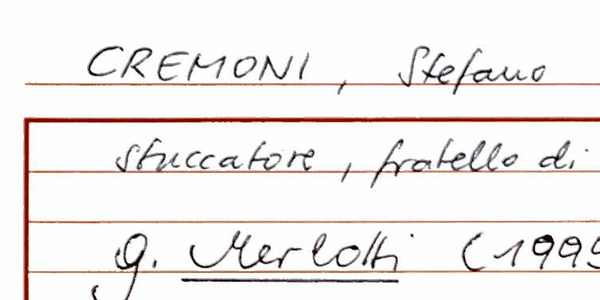 CREMONI, Stefano
stuccatore, fratello di
G. Merlotti (1995